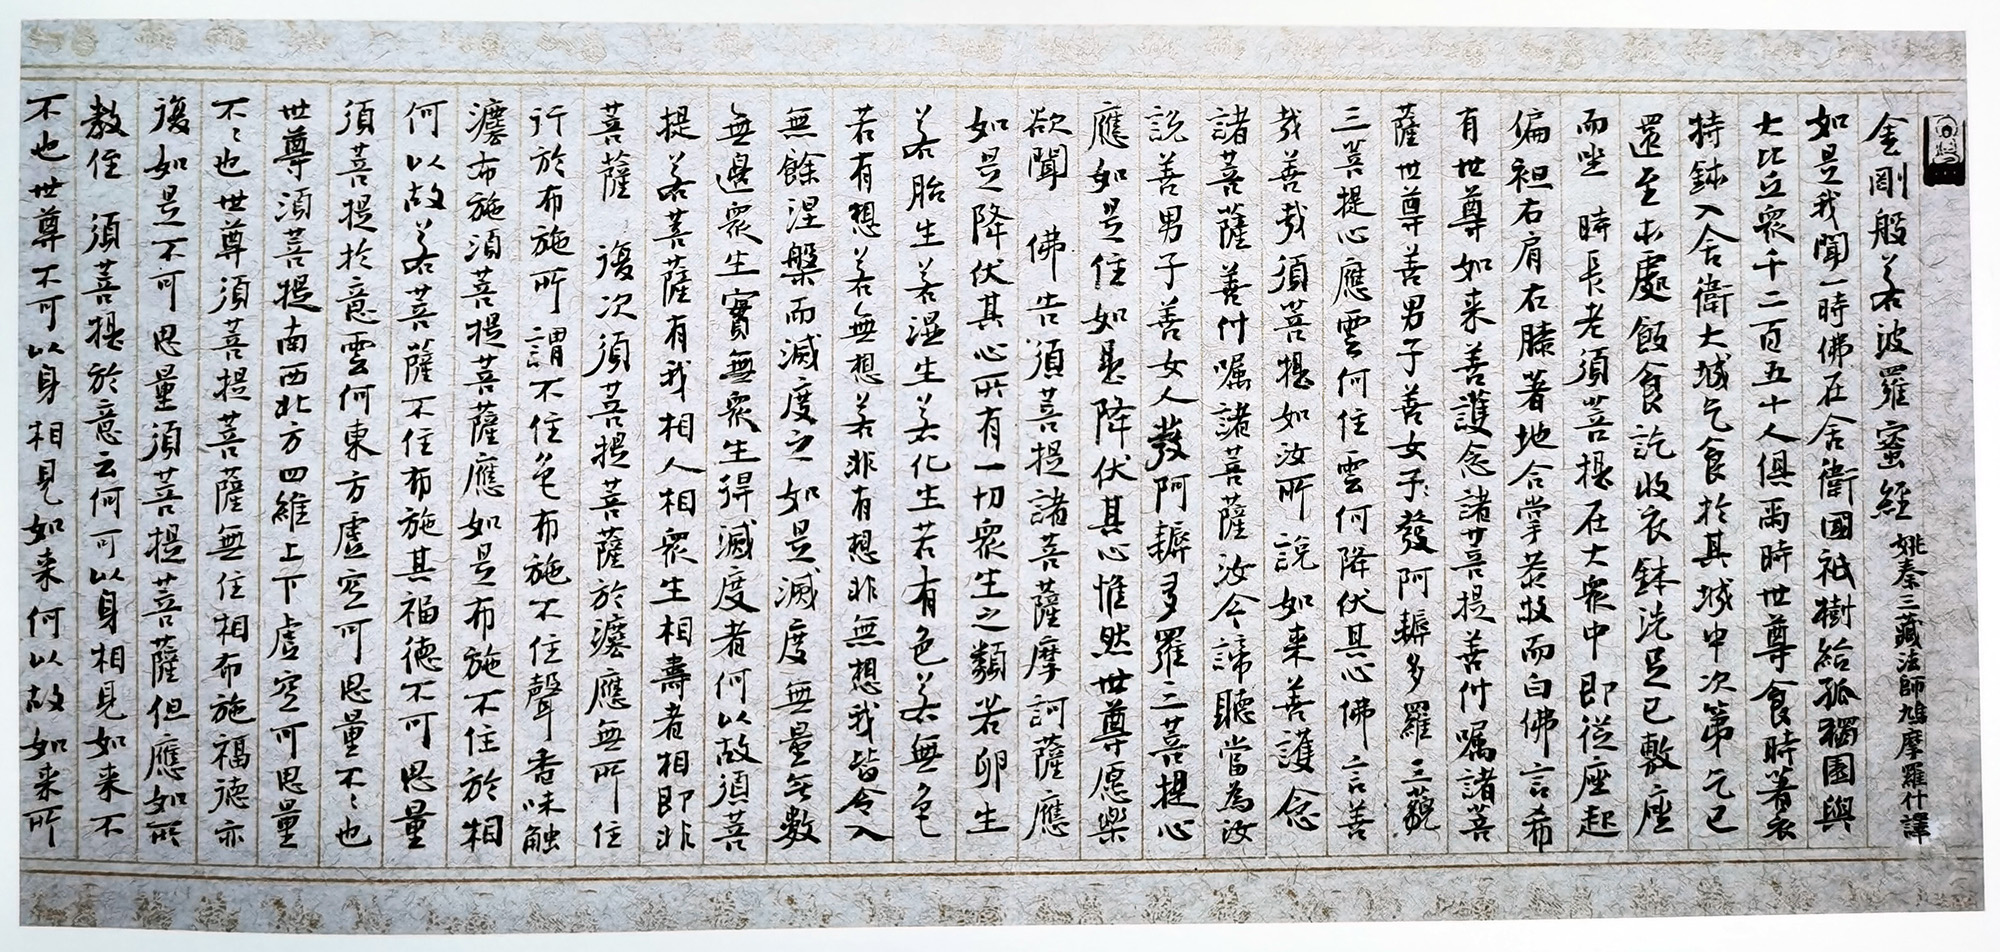 金剛般若波羅蜜經 姚秦三藏法師鳩摩羅什譯
如是我聞一時佛在舍衛國祇樹給孤獨園與
大比丘眾千二百五十人俱爾時世尊食時著衣
持鉢入舍衛大城乞食於其城中次第乞已
還至本處飯食訖收衣鉢洗足已敷座
而坐 時長老須菩提在大眾中即從座起
偏袒右肩右膝著地合掌恭敬而白佛言希
有世尊如来善護念諸菩提善付囑諸菩
薩世尊善男子善女子發阿耨多羅三藐
三菩提心應雲何住雲何降伏其心佛言善
哉善哉須菩提如汝所說如来善護念
諸菩薩善付囑諸菩薩汝今諦聽當為汝
說善男子善女人發阿耨多羅三菩提心
應如是住如是降伏其心惟然世尊愿樂
欲聞 佛告須菩提諸菩薩摩訶薩應
如是降伏其心所有一切眾生之類若卵生
若胎生若濕生若化生若有色若無色
若有想若無想若非有想非無想我皆令入
無餘涅槃而滅度之如是滅度無量無數
無邊眾生實無眾生得滅度者何以故須菩
提若菩薩有我相人相眾生相壽者相即非
菩薩 復次須菩提菩薩於法應無所住
行於布施所謂不住色布施不住聲香味觸
灋布施須菩提菩薩應如是布施不住於相
何以故若菩薩不住布施其福德不可思量
須菩提於意雲何東方虛空可思量不〻也
世尊須菩提南西北方四維上下虛空可思量
不〻也世尊須菩提菩薩無住相布施福德亦
復如是不可思量須菩提菩薩但應如所
教住 須菩提於意云何可以身相見如来不
不也世尊不可以身相見如来何以故如来所